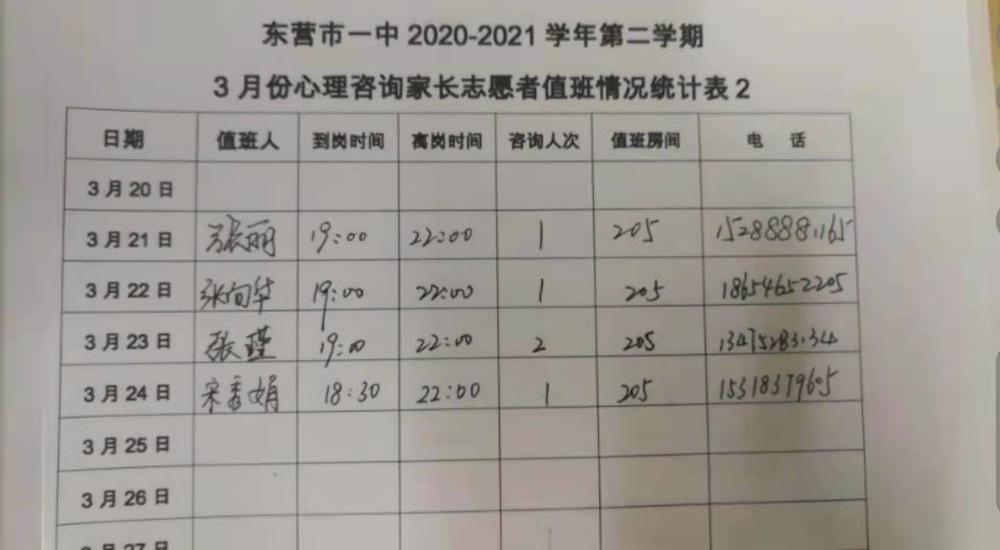 东营市一中2020-2021学年第二学期
3月份心理咨询家长志愿者值班情况统计表2
日期 值班人 到岗时间 离岗时间 咨询人次 值班房间 电 话
3月20日
3月21日 丽 19:00 22:00 1 205
3月22日 张 华 19:00 22:00 1 205 18654652205
3月23日 张瑾 19:00 22:00 2 205
3月24日 宋秀娟 18:30 22:00 1 205 15318379605
3月25日
3月26日
3月27日